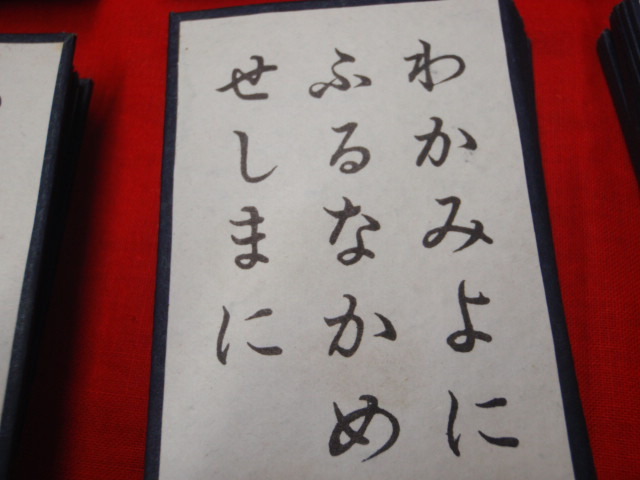 わかみよに
ふるなかめ
せしまに